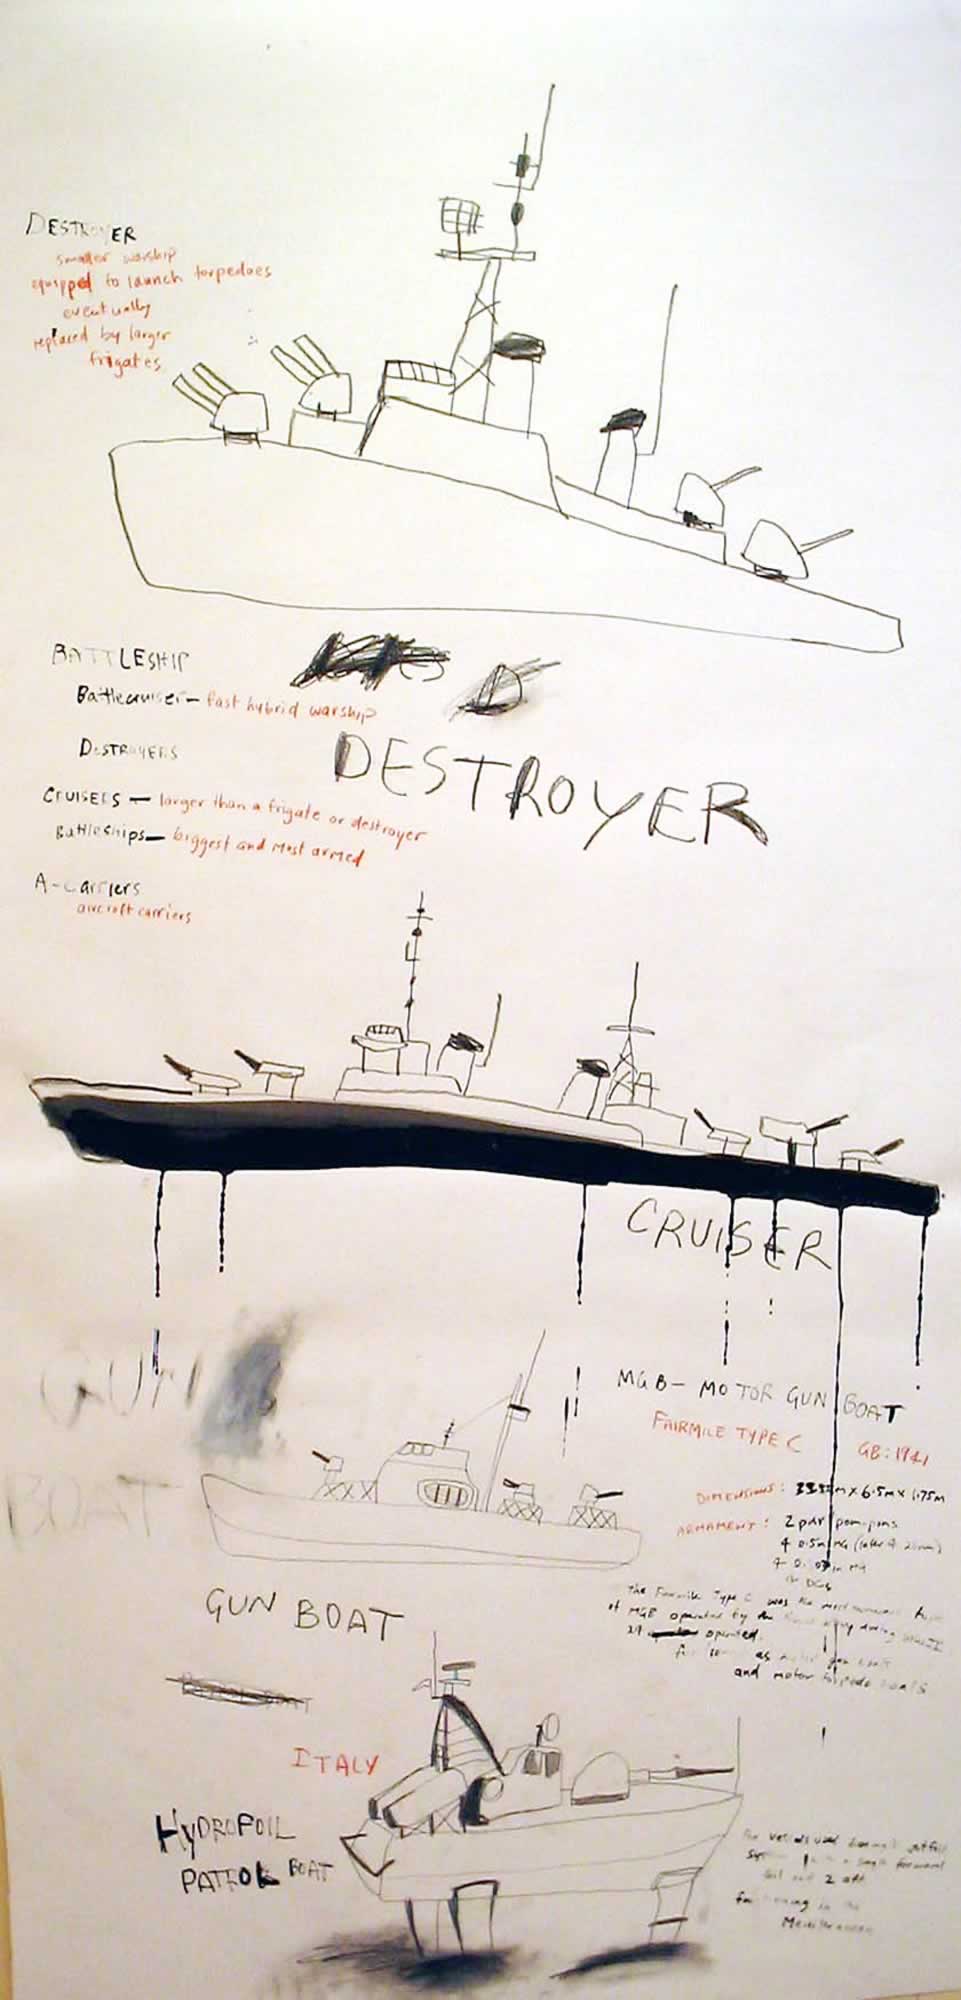 DESTROYER
smaller warship
equipped to launch torpedoes
eventually
replaced by larger
frigates
BATTLESHIP
Battlecruiser - fast hybrid warship
DESTROYER
DESTROYERS
CRUISERS - larger than a frigate or destroyer
Battleships - biggest and most armed
A-Carriers
aircraft carriers
CRUISER
GUN
BOAT
MGB - MOTOR GUN BOAT
FAIRMILE TYPE C GB: 1941
DIMENSIONS: m x 6.5m x 1.75m
ARMAMENT: 2 pdr pom-poms
4 0.5in MG (later 4 20mm)
4 0.303in MG
DCs
The Fairmile Type C was the most numerous type
of MGB operated by the Royal Navy during
operated.
as motor gun boats
and motor torpedo boats
GUN BOAT
ITALY
HYDROFOIL
PATROL BOAT
vessels used
a single forward
foil and 2 aft
functioning in the
Mediterranean